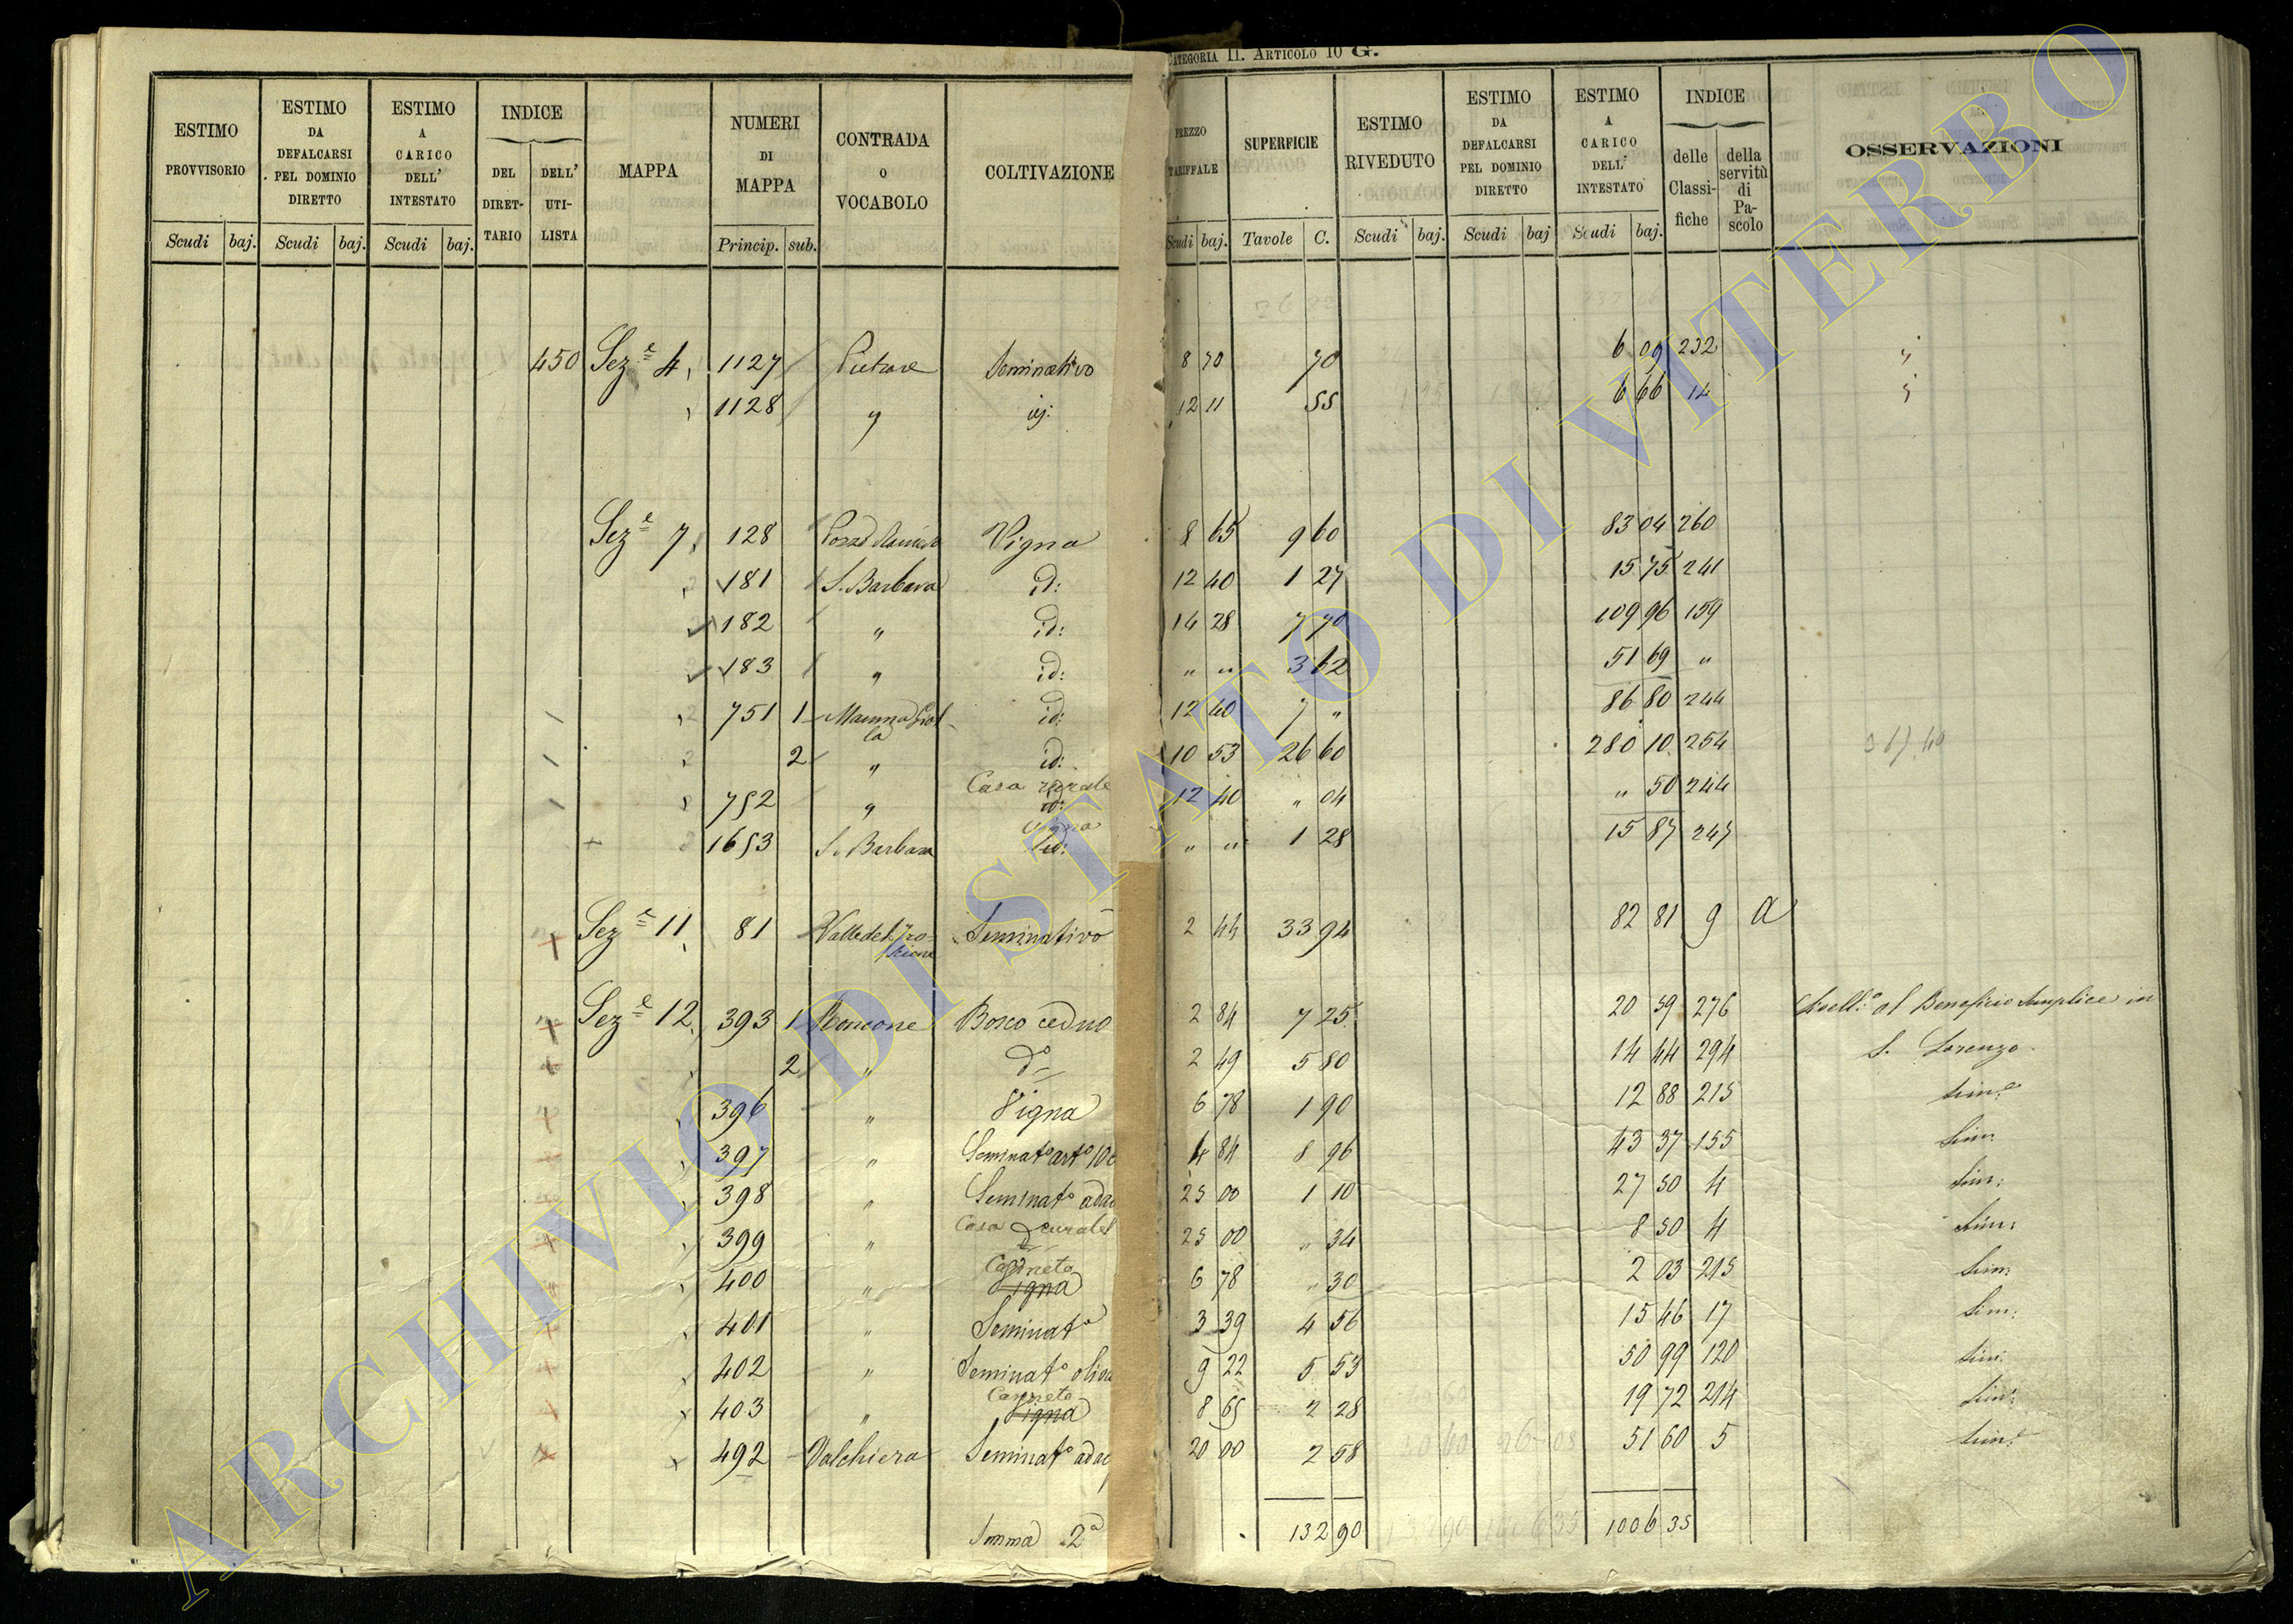 CATEGORIA II. ARTICOLO 10 G.
ESTIMO PROVVISORIO
Scudi baj.
ESTIMO DA DEFALCARSI PEL DOMINIO DIRETTO
Scudi baj.
ESTIMO A CARICO DELL' INTESTATO
Scudi baj.
INDICE
DEL DIRETTARIO
DELL' UTILISTA
MAPPA
NUMERI DI MAPPA
Princip. sub.
CONTRADA O VOCABOLO
COLTIVAZIONE
PREZZO TARIFFALE
Scudi baj.
SUPERFICIE
Tavole C.
ESTIMO RIVEDUTO
Scudi baj.
ESTIMO DA DEFALCARSI PEL DOMINIO DIRETTO
Scudi baj
ESTIMO A CARICO DELL' INTESTATO
Scudi baj.
INDICE
delle Classifiche
della servitù di Pascolo
OSSERVAZIONI
450 Sez.e 4 1127 Seminativo 8 70 70 6 09 232
1128 " id: 12 11 55 6 66 14
Sez.e 7 128 Vigna 8 65 9 60 83 04 260
181 S. Barbara id: 12 40 1 27 15 75 241
182 " id: 14 28 7 70 109 96 159
183 " id: " " 3 62 51 69 "
751 1 id: 12 40 7 " 86 80 244
2 " id: 10 53 26 60 280 10 254
Casa rurale
752 " id: 12 40 " 04 " 50 244
Vigna
1653 S. Barbara id: " " 1 28 15 87 247
Sez.e 11 81 Seminativo 2 44 33 94 82 81 9 a
Sez.e 12 393 1 Roncone Bosco ceduo 2 84 7 25 20 59 276 al Beneficio Semplice in
2 " do 2 49 5 80 14 44 294 S. Lorenzo
396 " Vigna 6 78 1 90 12 88 215 Sim.e
397 " Seminato arto 4 84 8 96 43 37 155 Sim
398 " Seminato 25 00 1 10 27 50 4 Sim:
Casa rurale
399 " 25 00 " 34 8 50 4 Sim:
Canneto
400 " Vigna 6 78 " 30 2 03 215 Sim:
401 " Seminato 3 39 4 56 15 46 17 Sim:
402 " Seminato 9 22 5 53 50 99 120 Sim:
Canneto
403 " Vigna 8 65 2 28 19 72 214 Sim:
492 Valchiera Seminato 20 00 2 58 51 60 5 Sim:
Somma 2a 132 90 1006 35
ARCHIVIO DI STATO DI VITERBO